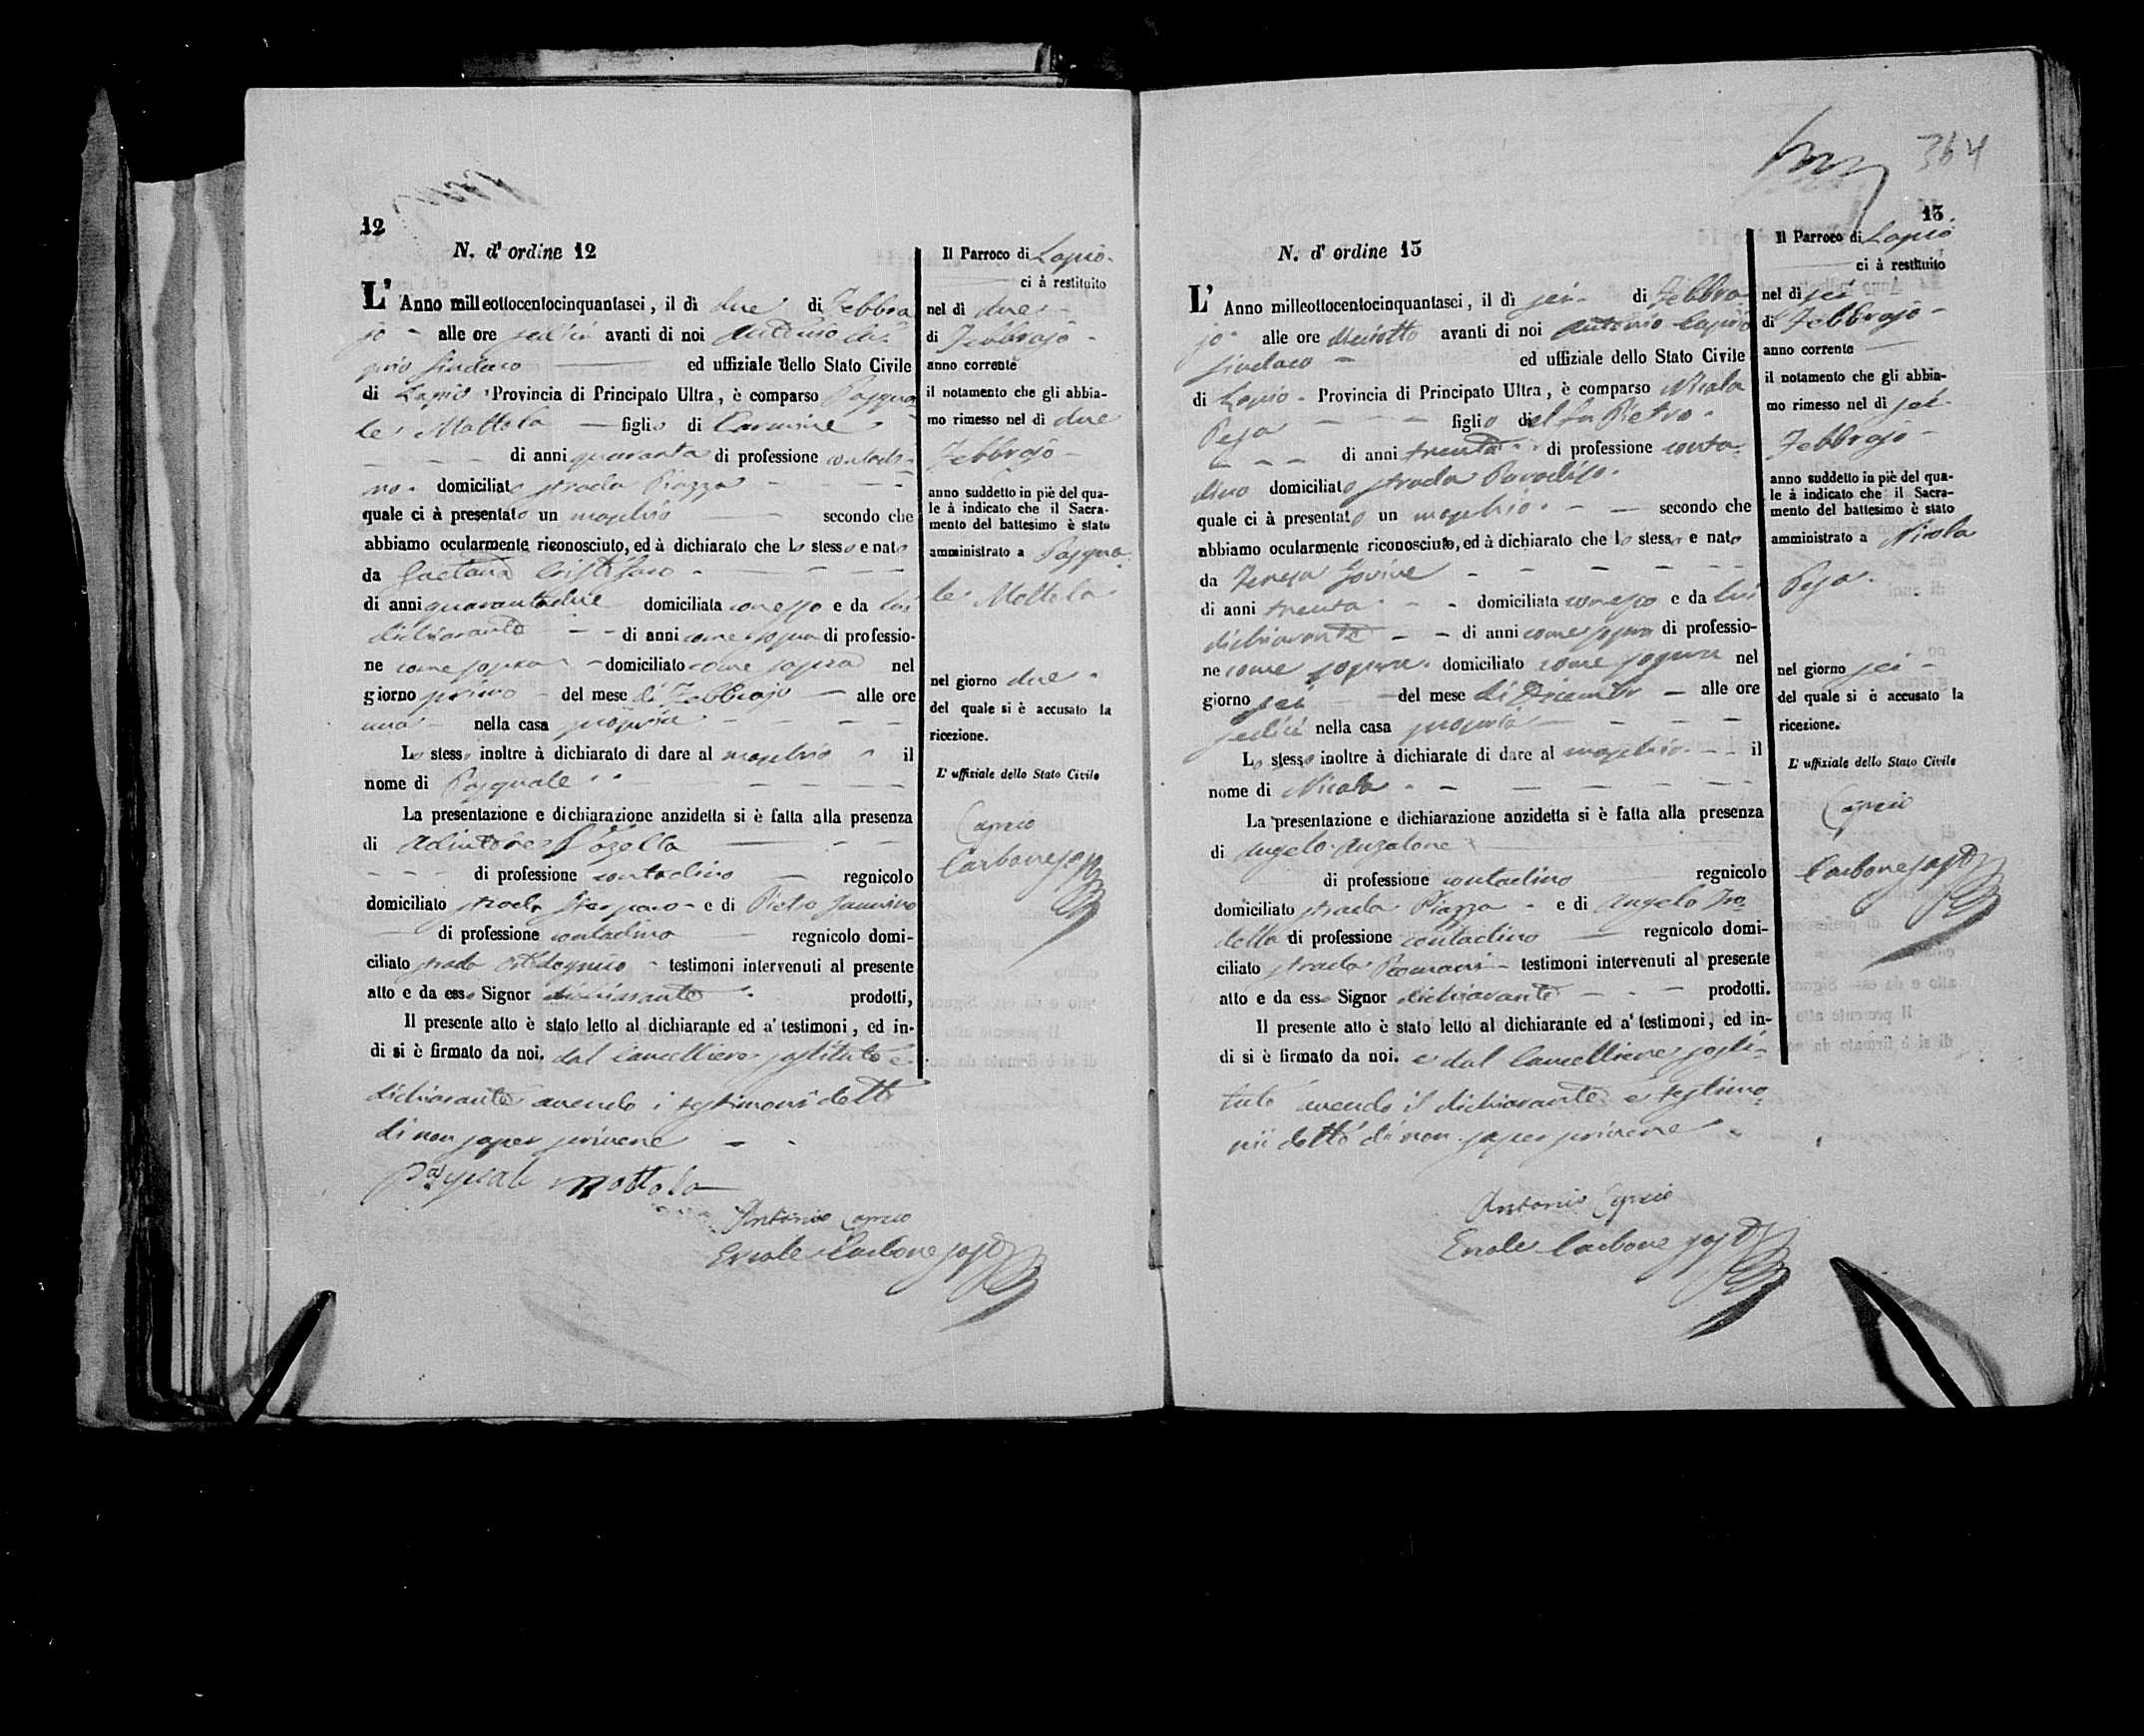 12
N. d' ordine 12
L' Anno milleottocentocinquantasei, il dì due di Febbra
jo alle ore sedici avanti di noi Antonio Ca
prio Sindaco ed uffiziale dello Stato Civile
di Lapio Provincia di Principato Ultra, è comparso Pasqua
le Mottola figlio di Carmine
di anni quaranta di professione contadi
no domiciliato strada Piazza
quale ci à presentato un maschio secondo che
abbiamo ocularmente riconosciuto, ed à dichiarato che lo stesso e nato
da Gaetana Cristofaro
di anni quarantadue domiciliata con esso e da lui
dichiarante di anni come sopra di professio-
ne come sopra domiciliato come sopra nel
giorno primo del mese di Febbrajo alle ore
una nella casa propria
Lo stesso inoltre à dichiarato di dare al maschio il
nome di Pasquale
La presentazione e dichiarazione anzidetta si è fatta alla presenza
di
di professione contadino regnicolo
domiciliato strada e di Pietro
di professione contadino regnicolo domi-
ciliato strada testimoni intervenuti al presente
atto e da esso Signor dichiarante prodotti,
Il presente atto è stato letto al dichiarante ed a' testimoni, ed in-
di si è firmato da noi. dal Cancelliere sostituto e
dichiarante avendo i testimoni detto
di non saper scrivere
Pasquale Mottola
Antonio Caprio
Ercole Carbone sosto
Il Parroco di Lapio
ci à restituito
nel dì due
di Febbrajo
anno corrente
il notamento che gli abbia-
mo rimesso nel di due
Febbrajo
anno suddetto in piè del qua-
le à indicato che il Sacra-
mento del battesimo è stato
amministrato a Pasqua
le Mottola
nel giorno due
del quale si è accusato la
ricezione.
L' uffiziale dello Stato Civile
Caprio
Carbone sosto
364
13
N. d' ordine 13
L' Anno milleottocentocinquantasei, il dì sei di Febbra
jo alle ore diciotto avanti di noi Antonio Caprio
Sindaco ed uffiziale dello Stato Civile
di Lapio Provincia di Principato Ultra, è comparso Nicola
Pesa figlio del fu Pietro
di anni trenta di professione conta
dino domiciliato strada Paradiso
quale ci à presentato un maschio secondo che
abbiamo ocularmente riconosciuto, ed à dichiarato che lo stesso e nato
da Teresa Iovine
di anni trenta domiciliata con esso e da lui
dichiarante di anni come sopra di professio-
ne come sopra domiciliato come sopra nel
giorno sei del mese di alle ore
sedici nella casa propria
Lo stesso inoltre à dichiarate di dare al maschio il
nome di Nicola
La presentazione e dichiarazione anzidetta si è fatta alla presenza
di Angelo Anzalone
di professione contadino regnicolo
domiciliato strada Piazza e di Angelo
di professione contadino regnicolo domi-
ciliato strada Romani testimoni intervenuti al presente
atto e da esso Signor dichiarante prodotti.
Il presente atto è stato letto al dichiarante ed a' testimoni, ed in-
di si è firmato da noi. e dal Cancelliere sosti-
tuto avendo il dichiarante e testimo
nii detto di non saper scrivere
Antonio Caprio
Ercole Carbone sosto
Il Parroco di Lapio
ci à restituito
nel dì sei
di Febbrajo
anno corrente
il notamento che gli abbia-
mo rimesso nel dì sei
Febbrajo
anno suddetto in piè del qua-
le à indicato che il Sacra-
mento del battesimo è stato
amministrato a Nicola
Pesa
nel giorno sei
del quale si è accusato la
ricezione.
L' uffiziale dello Stato Civile
Caprio
Carbone sosto